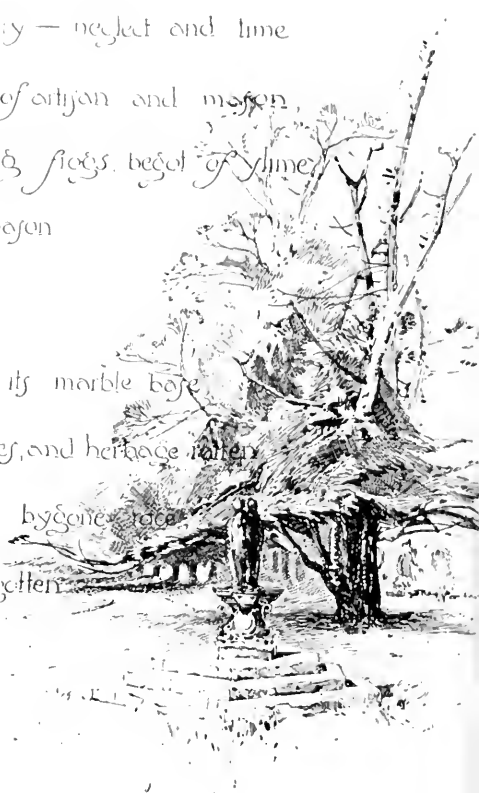 ry — neglect and time
of artisan and mason,
& frogs, begot of slime
ason
its marble base
es, and herbage rotten
bygone race
gotten